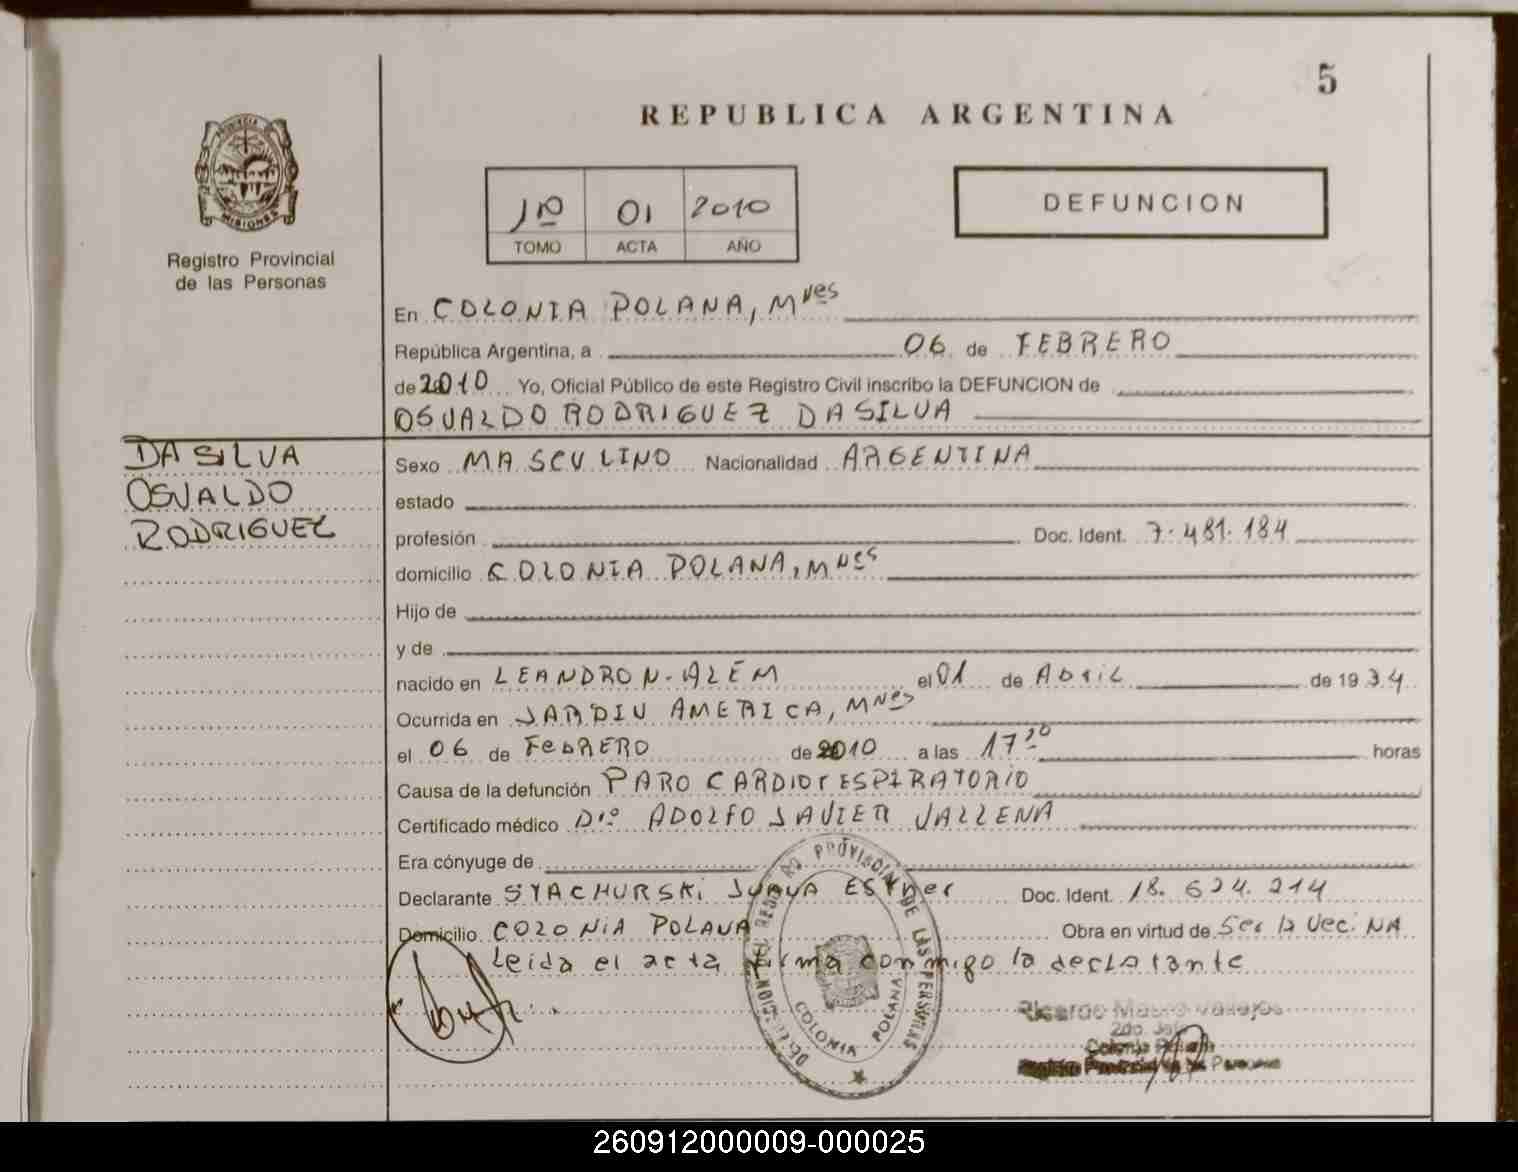 5
REPUBLICA ARGENTINA
PROVINCIA
MISIONES
Registro Provincial
de las Personas
1º 01 2010
TOMO ACTA AÑO
DEFUNCION
En COLONIA POLANA, Mnes
República Argentina, a 06 de FEBRERO
de 2010 Yo, Oficial Público de este Registro Civil inscribo la DEFUNCION de
OSVALDO RODRIGUEZ DA SILVA
DA SILVA
OSVALDO
RODRIGUEZ
Sexo MASCULINO Nacionalidad ARGENTINA
estado
profesión Doc. Ident. 7.481.184
domicilio COLONIA POLANA, Mnes
Hijo de
y de
nacido en LEANDRO N. ALEM el 01 de Abril de 1934
Ocurrida en JARDIN AMERICA, Mnes
el 06 de FebRERO de 2010 a las 17 30 horas
Causa de la defunción PARO CARDIORESPIRATORIO
Certificado médico Dr. ADOLFO JAVIER VALLENA
Era cónyuge de
Declarante STACHURSKi JUANA ESTHER Doc. Ident. 18.624.214
Domicilio COLONiA POLANA Obra en virtud de Ser la veciNA
Leida el acta firma conmigo la declarante
REGISTRO PROVINCIAL DE LAS PERSONAS
COLONIA POLANA
Ricardo Mauro Vallejos
2do. Jefe
Colonia Polana
Registro Provincial de las Personas
260912000009-000025